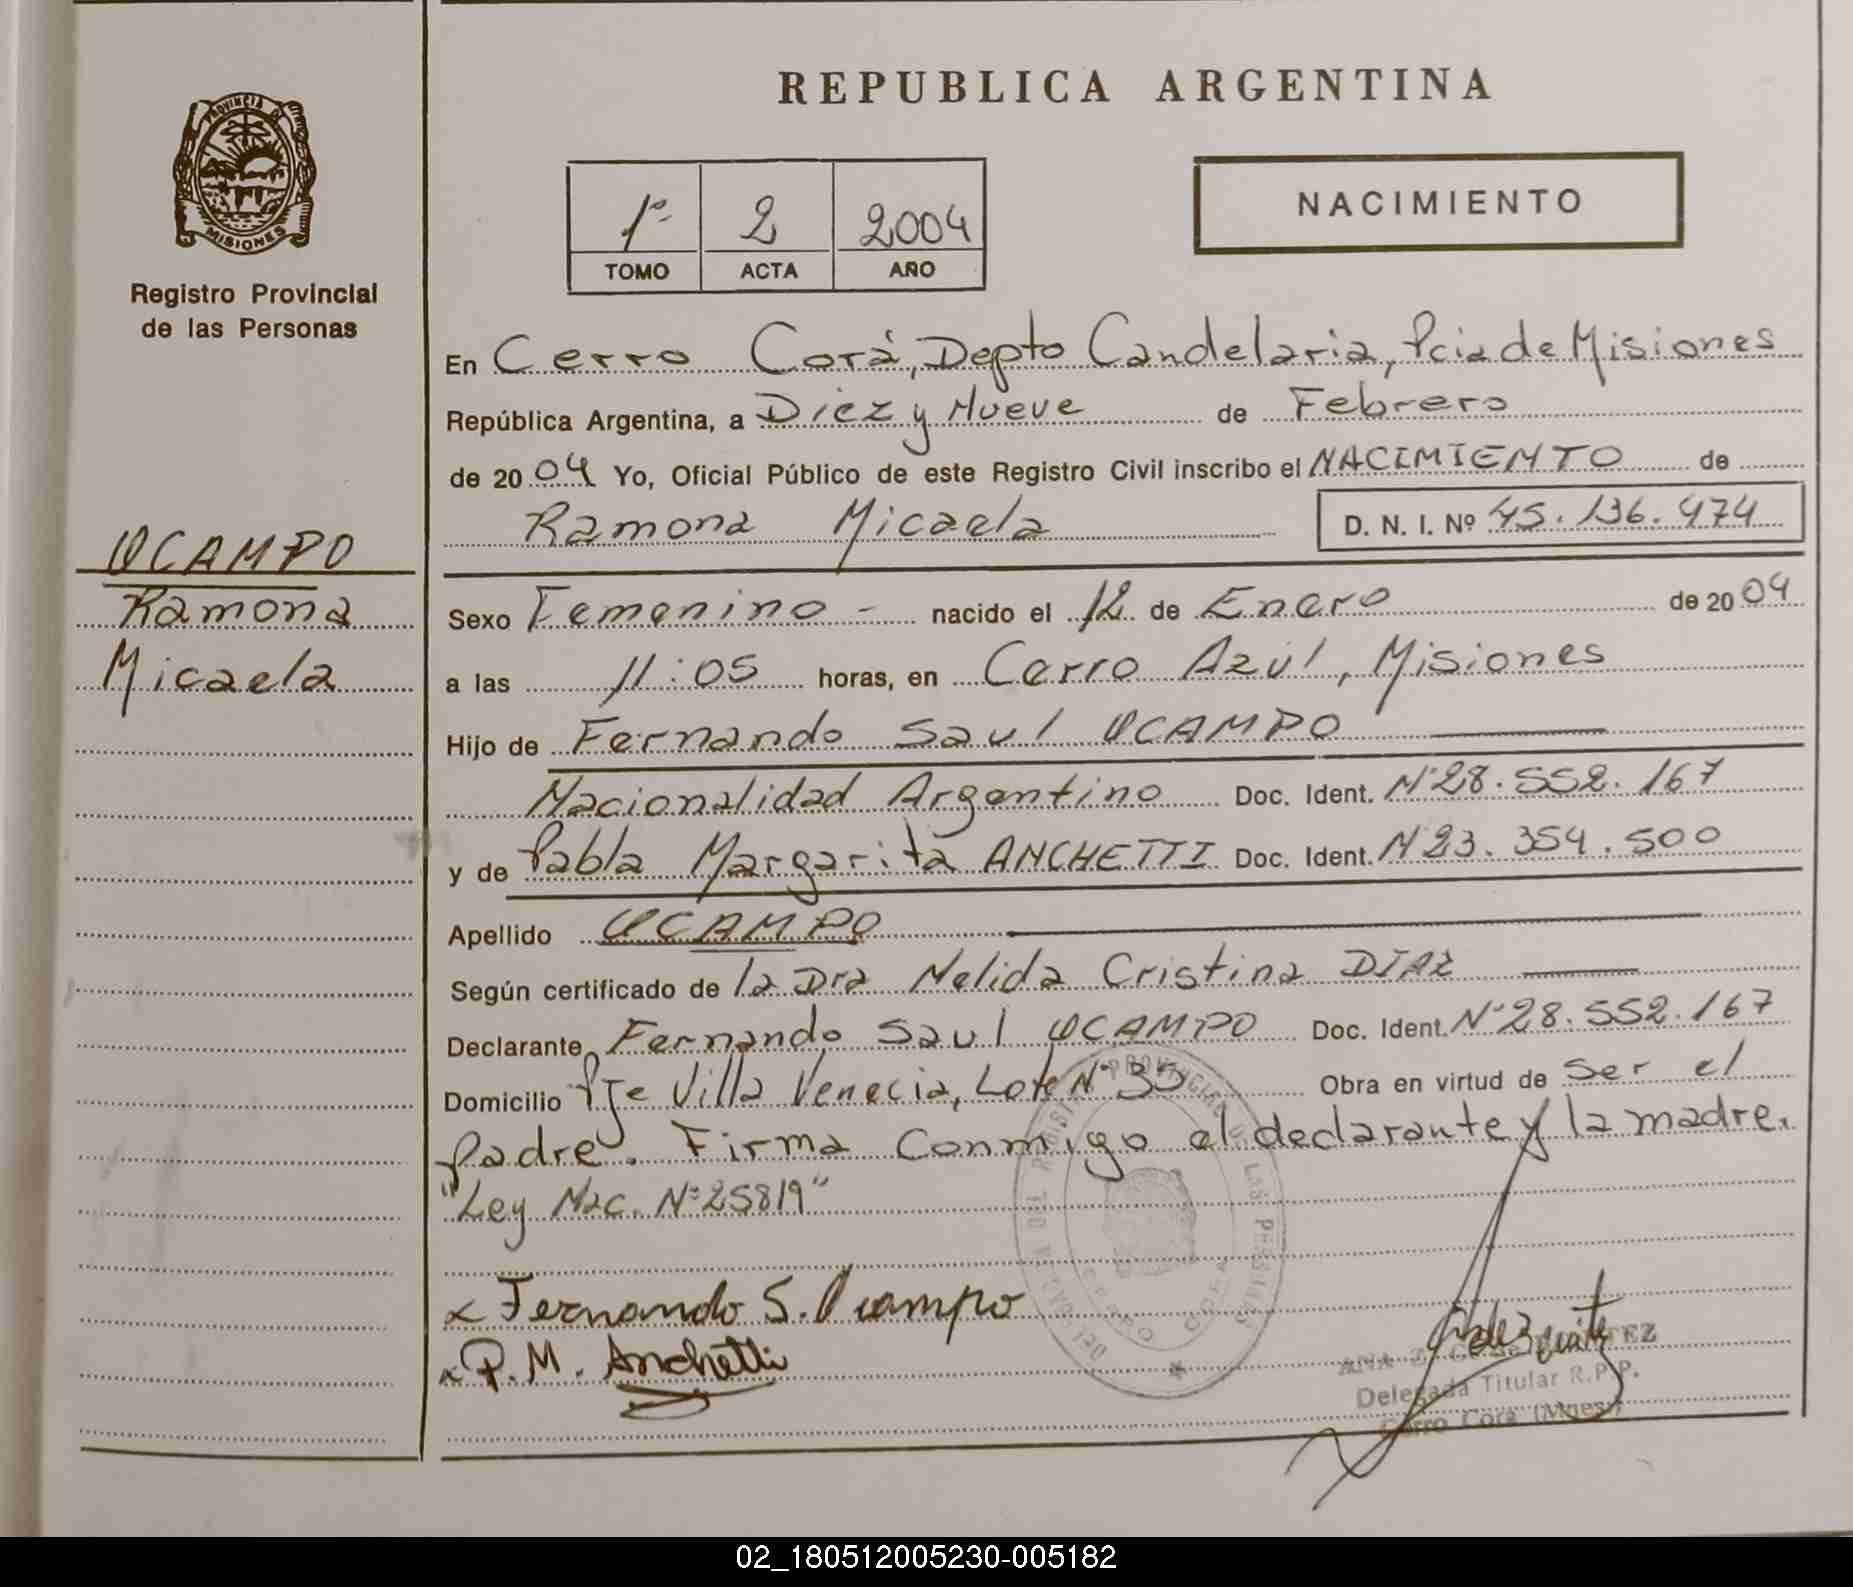 REPUBLICA ARGENTINA
PROVINCIA DE
MISIONES
Registro Provincial
de las Personas
1º 2 2004
TOMO ACTA AÑO
NACIMIENTO
OCAMPO
Ramona
Micaela
En Cerro Corá, Depto Candelaria, Pcia de Misiones
República Argentina, a Diez y Nueve de Febrero
de 2004 Yo, Oficial Público de este Registro Civil inscribo el NACIMIENTO de
Ramona Micaela D. N. I. Nº 45.136.474
Sexo Femenino - nacido el 12 de Enero de 2004
a las 11:05 horas, en Cerro Azul, Misiones
Hijo de Fernando Saul OCAMPO
Nacionalidad Argentino Doc. Ident. Nº 28.552.167
y de Pabla Margarita ANCHETTI Doc. Ident. Nº 23.354.500
Apellido OCAMPO
Según certificado de la Dra Nelida Cristina DIAZ
Declarante Fernando Saul OCAMPO Doc. Ident. Nº 28.552.167
Domicilio Pje Villa Venecia, Lote Nº 35 Obra en virtud de ser el
Padre. Firma conmigo el declarante y la madre.
"Ley Nac. Nº 25819"
x Fernando S. Ocampo
x P. M. Anchetti
PROVINCIAL DE LAS PERSONAS
CERRO CORA
ANA
Delegada Titular R.P.P.
Cerro Cora (Mnes)
02_180512005230-005182